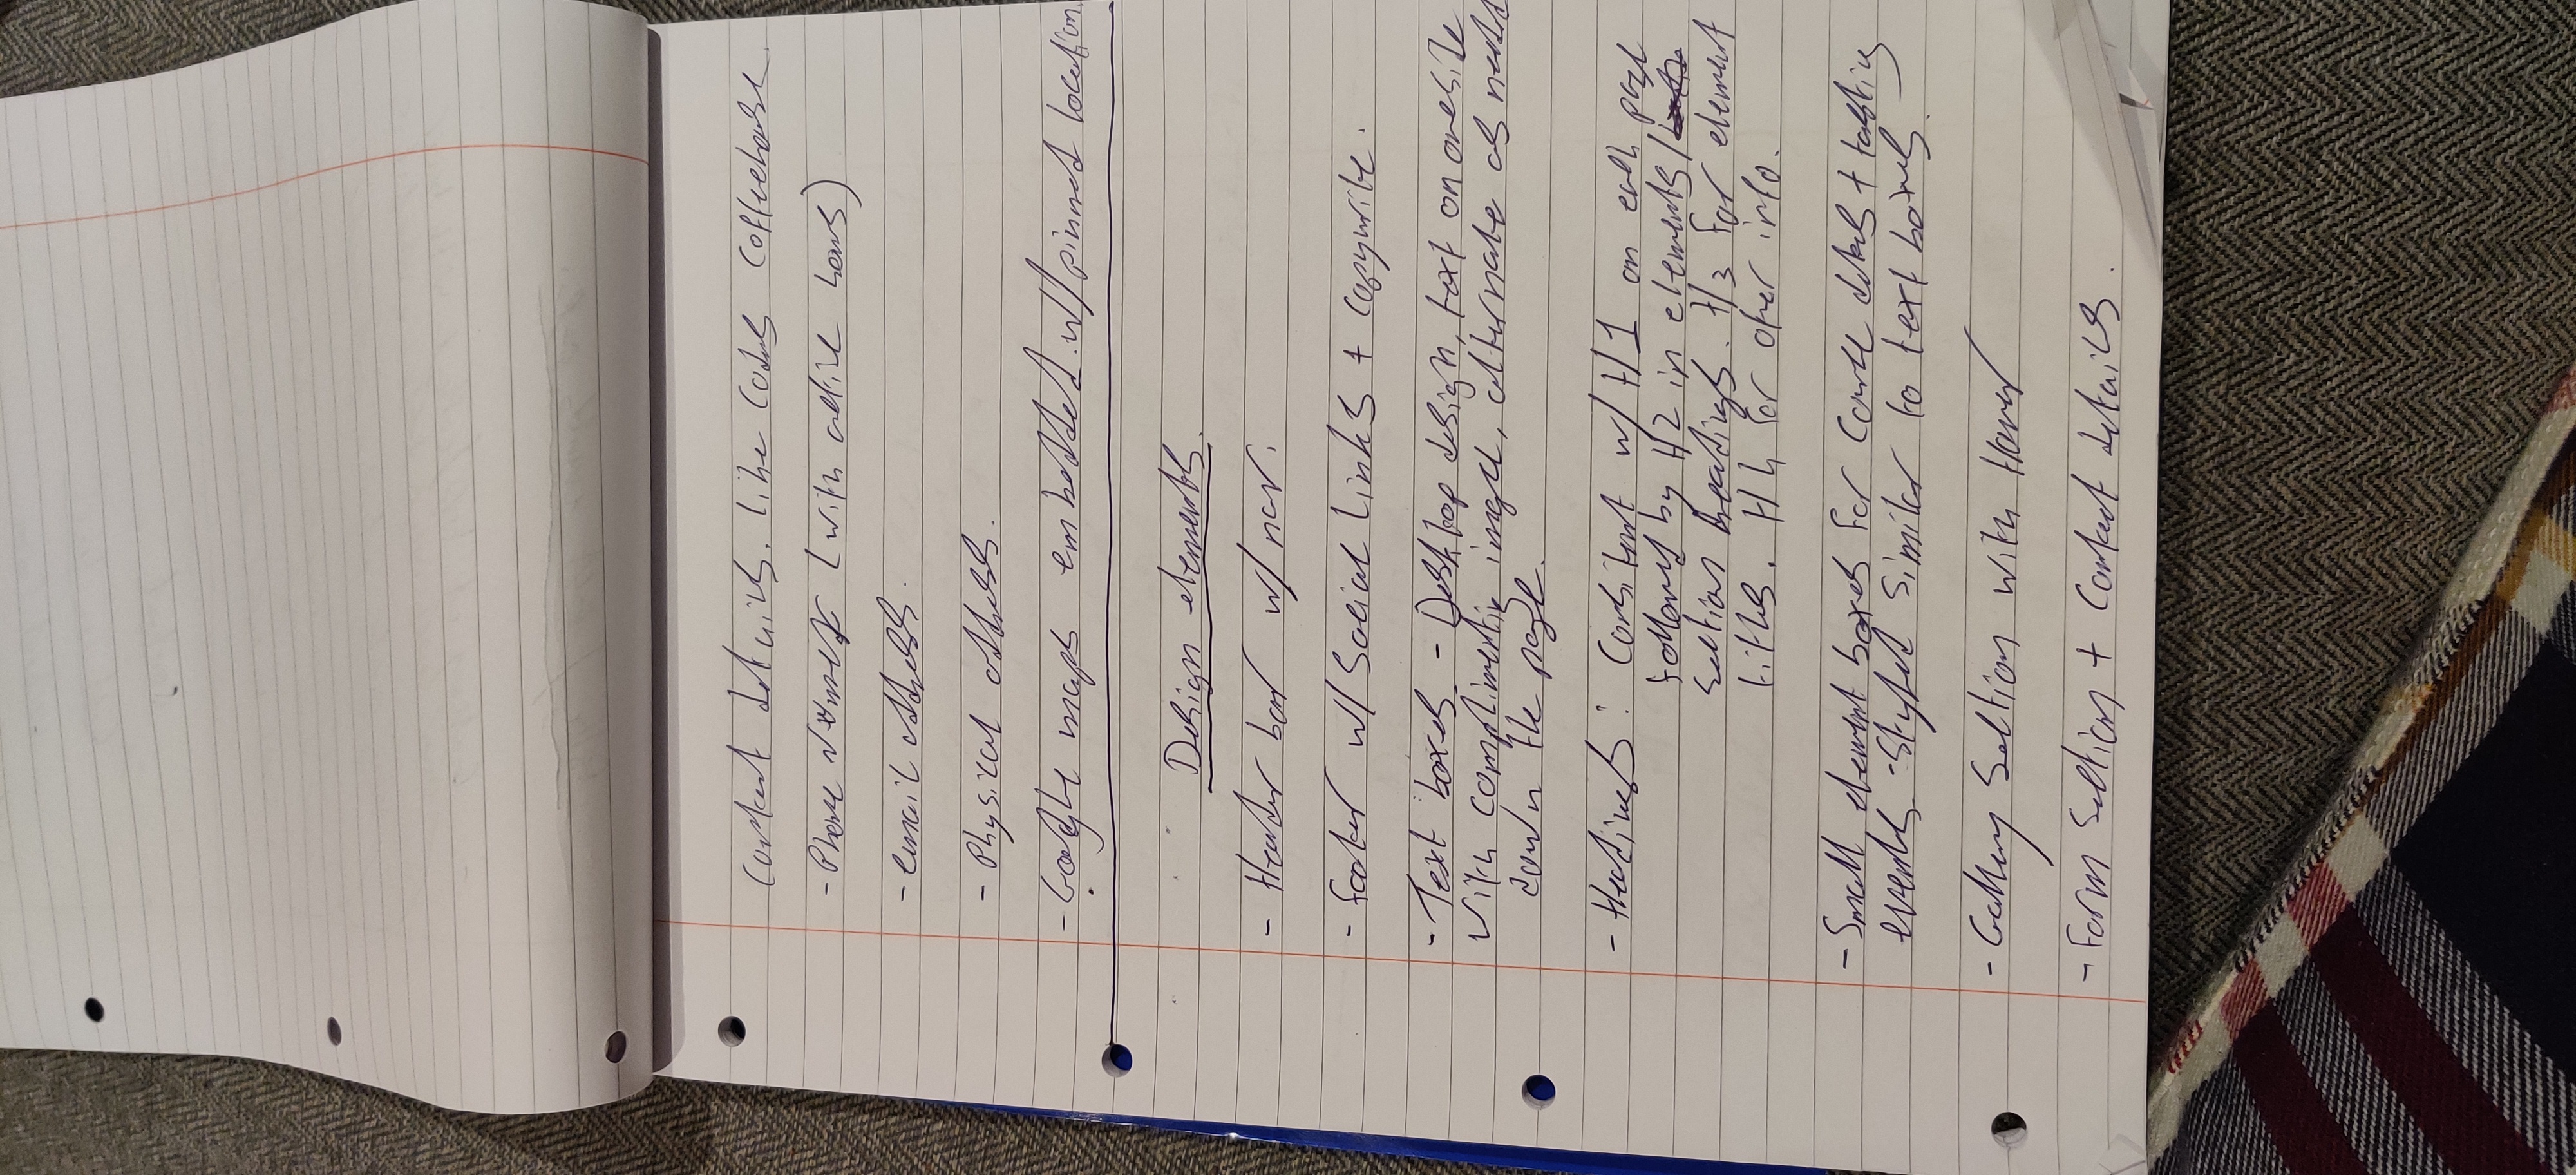 Contact details. like Coders Coffeehouse.
- Phone Number (with active hours)
- email address.
- Physical address.
- Google maps embedded w/ pinned location.
Design elements.
- Header bar w/ nav.
- footer w/ Social links + copywrite.
- Text boxes - Desktop design, text on one side
with complimenting image, alternate as needed
down the page.
- Headings: Consitant w/ H1 on each page
followed by H2 in elements/
section headings. H3 for element
titles. H4 for other info.
- Small element boxes for course details + tasting
events - styled similar to text boxes.
- Gallery Section with Hover
- Form Section + Contact details.